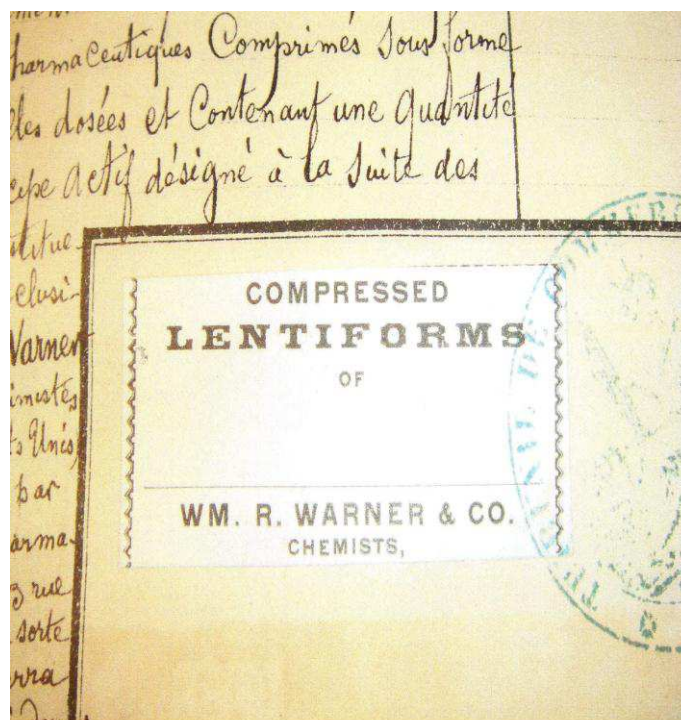 harmaceutiques Comprimés Sous forme
lles dosées et Contenant une quantité
cipe actif désigné à la Suite des
stitue
clusi-
Warner
imistes
ts Unis,
par
arma-
3 rue
sorte
rra
COMPRESSED
LENTIFORMS
OF
WM. R. WARNER & CO.
CHEMISTS,
TRIBUNAL DE COMMERC